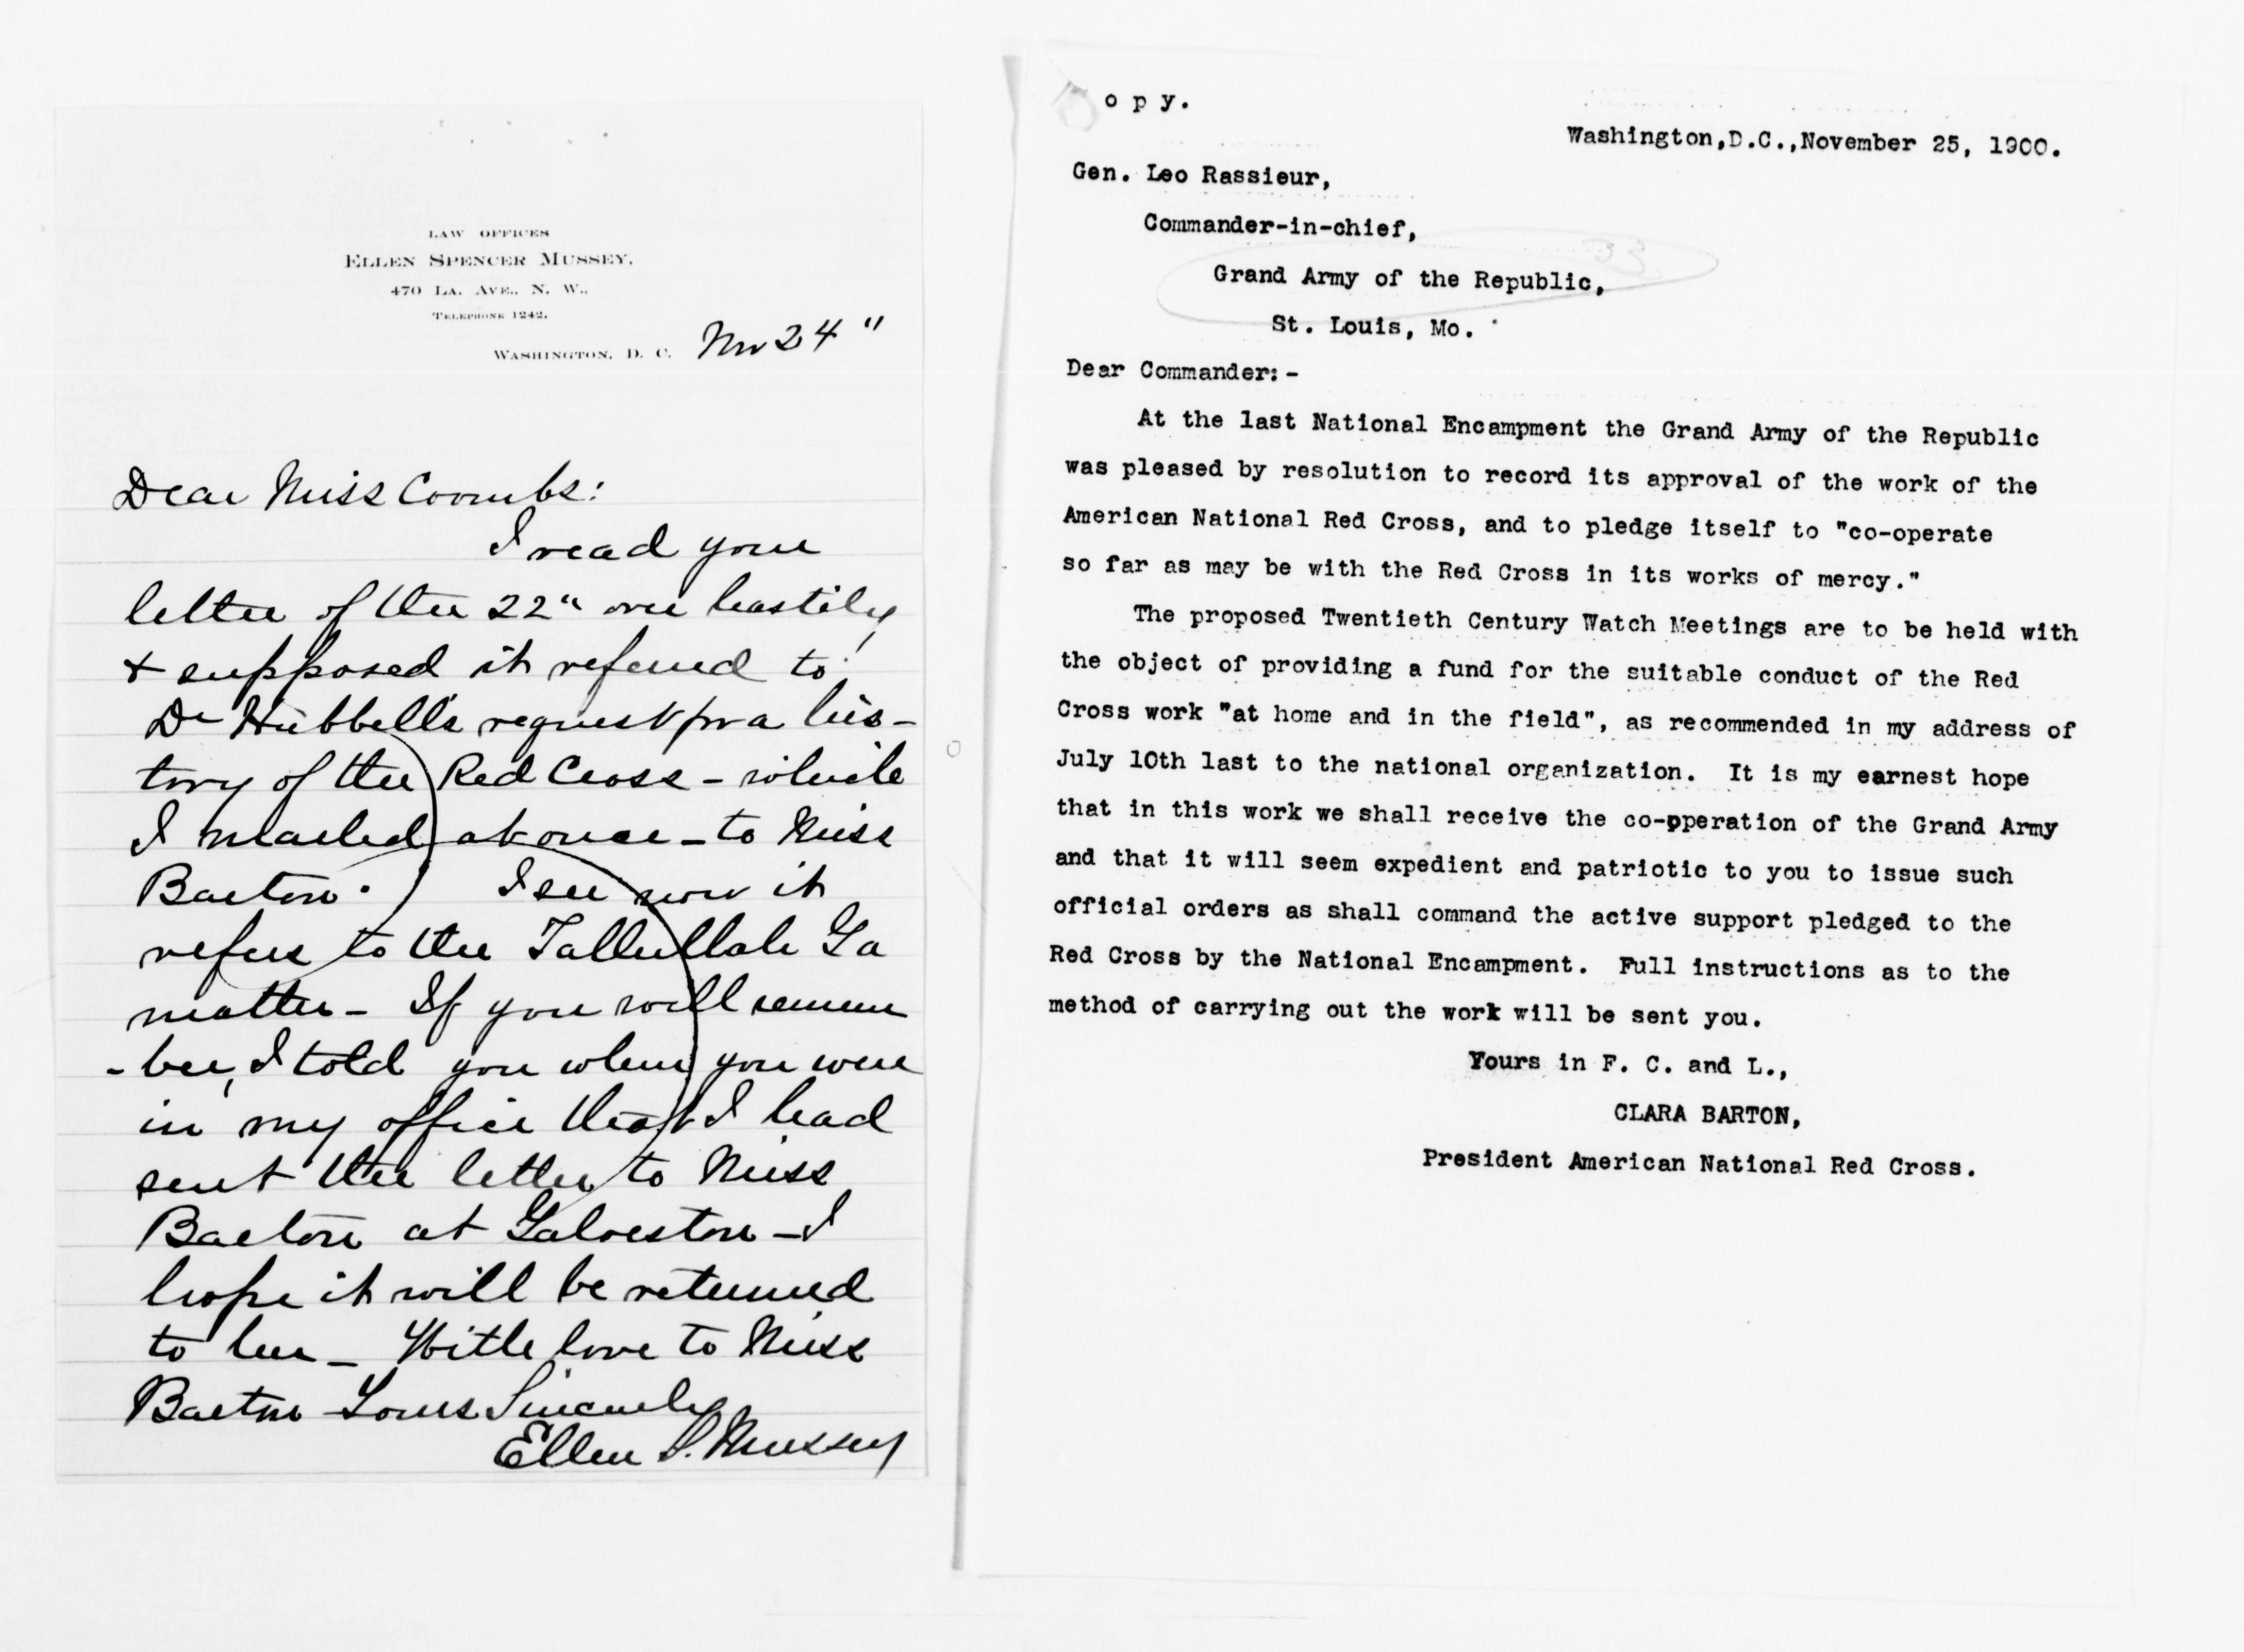 LAW OFFICES
ELLEN SPENCER MUSSEY,
470 LA. AVE., N. W.,
TELEPHONE 1242.
WASHINGTON, D. C. Nov 24"
Dear Miss Coombs:
I read your
letter of the 22" over hastily
& supposed it referred to
Dr Hubbell's request for a his-
tory of the Red Cross - which
I mailed at once - to Miss
Barton. I see now it
refers to the Tallullah Ga
matter - If you will remem
-ber, I told you when you were
in my office that I had
sent the letter to Miss
Barton at Galveston - I
hope it will be returned
to her - With love to Miss
Barton Yours Sincerely
Ellen S. Mussey
opy.
Washington,D.C.,November 25, 1900.
Gen. Leo Rassieur,
Commander-in-chief,
Grand Army of the Republic,
St. Louis, Mo.
Dear Commander:-
At the last National Encampment the Grand Army of the Republic
was pleased by resolution to record its approval of the work of the
American National Red Cross, and to pledge itself to "co-operate
so far as may be with the Red Cross in its works of mercy."
The proposed Twentieth Century Watch Meetings are to be held with
the object of providing a fund for the suitable conduct of the Red
Cross work "at home and in the field", as recommended in my address of
July 10th last to the national organization. It is my earnest hope
that in this work we shall receive the co-pperation of the Grand Army
and that it will seem expedient and patriotic to you to issue such
official orders as shall command the active support pledged to the
Red Cross by the National Encampment. Full instructions as to the
method of carrying out the work will be sent you.
Yours in F. C. and L.,
CLARA BARTON,
President American National Red Cross.